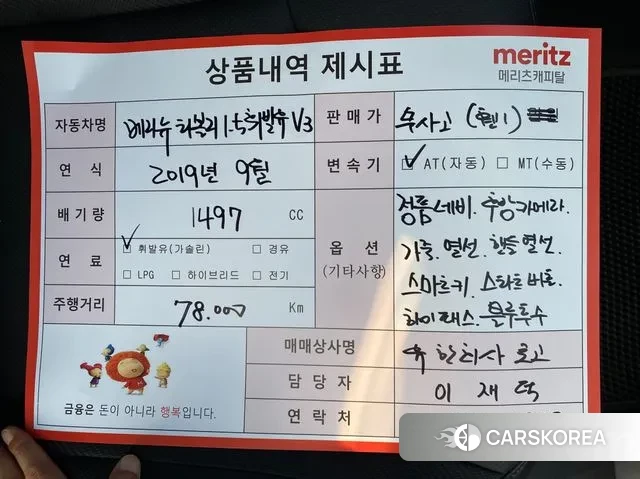 상품내역 제시표
meritz
메리츠캐피탈
자동차명 베리뉴 티볼리 1.5 휘발유 V3
판매가 무사고 (휀1)
연식 2019년 9월
변속기 ☑ AT(자동) □ MT(수동)
배기량 1497 CC
옵션 (기타사항)
정품네비. 후방카메라.
가죽. 열선. 핸들열선.
스마트키. 스타트버튼.
하이패스. 블루투스
연료 ☑ 휘발유(가솔린) □ 경유
□ LPG □ 하이브리드 □ 전기
주행거리 78.000 Km
매매상사명
담당자 이재덕
연락처
금융은 돈이 아니라 행복입니다.
CARSKOREA